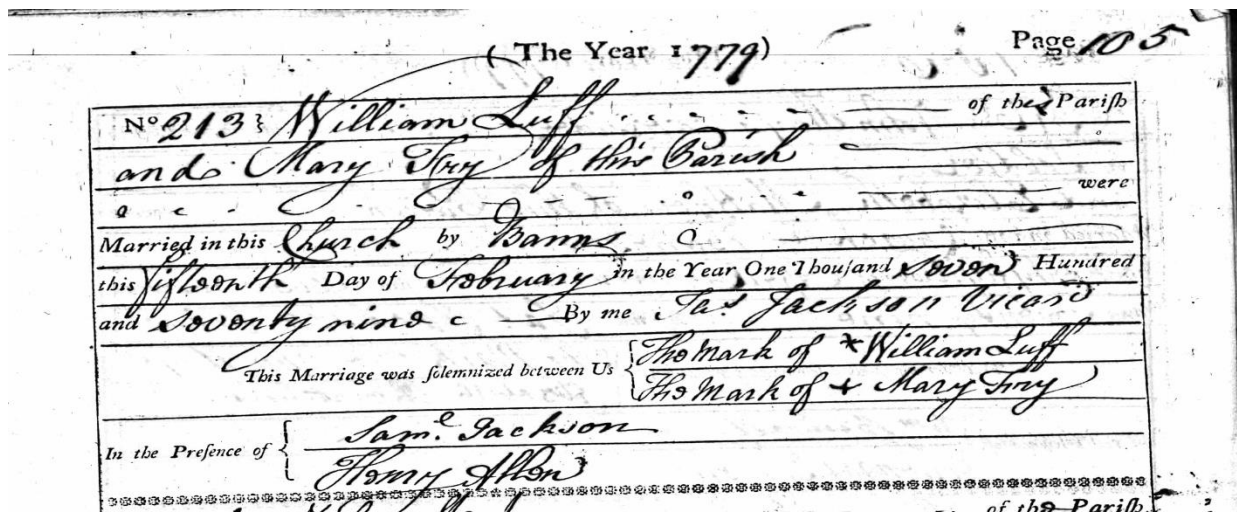 ( The Year 1779)
Page 105
No 213 } William Luff of the Parish
and Mary Fry of this Parish
were
Married in this Church by Banns
this fifteenth Day of February in the Year One Thouſand seven Hundred
and seventy nine By me Jas. Jackson Vicar
This Marriage was ſolemnized between Us { The Mark of x William Luff
The Mark of + Mary Fry
In the Preſence of { Saml. Jackson
Henry Allen
of the Pariſh